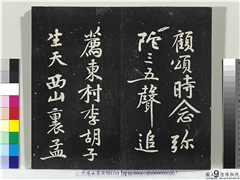 顧頌時念弥
陀三五聲追
薦東村李胡子
生天西山裏孟